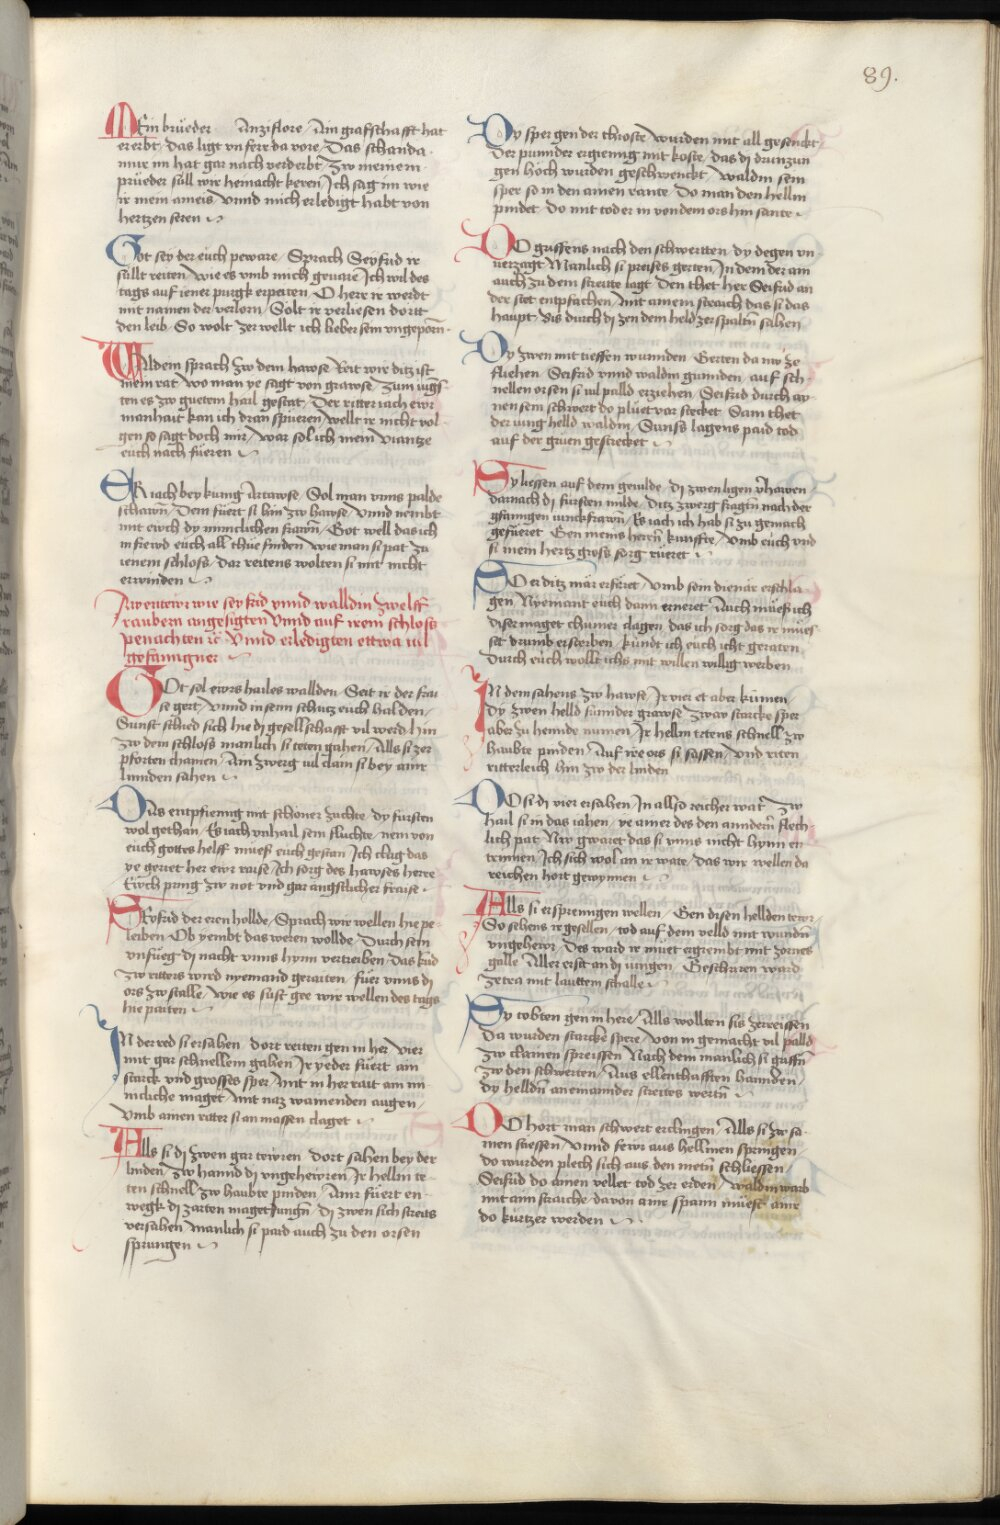 89.
MEin brueder Anziflore / Ain grafschafft hat
ererbt / das ligt vnfere da vore / Das schanda
mur im hat gar nach verderbt / Zw meinem
prüeder süll wir heinacht keren / Ich sag im wie
ir mein ameis / Vnnd mich erledigt habt von
hertzen seren
Got sey der euch peware / Sprach Seyfrid ir
süllt reiten / wie es vmb mich geuare / Ich wil des
tags auf iener purgk erpeiten / O herr ir werdt
mit namen der verlorn / Sölt ir verliesen dortt
den leib / So wolt zer wellt ich lieber sein vngeporn
WAldein sprach zw dem hawse / Reit wir ditz ist
mein rat / wo man ye sagt von grawse / Zum iungs
ten es zw guetem hail gestat / Der ritter iach ewr
manhait kan ich dran spüeren / wellt ir nicht vol
gen so sagt doch mir / war sol ich mein viantze
euch nach füeren
ER iach bey kunig Artawse / Sol man vnns palde
schawn / Dem füert si hin zw hawse / Vnnd nembt
mit ewch dy minniclichen frawn / Got well das ich
in frewd euch all thüe finden / wie man si pat zu
ienem schloss / dar reitens wolten si mit nicht
erwinden
Awentewr wie seyfrid vnnd walldin zwelff
raubern angesigten Vnnd auf irem schloss
penachten ic Vnnd erledigten ettwa vil
gefanngner
GOt sol ewrs hailes wallden / Seit ir der frai
se gert / vnnd in seim schutz euch halden /
Sunst schied sich hie di gesellschafft vil werd / hin
zw dem schloss manlich si teten gahen / Alls si zer
pforten chamen / Ain zwerg vil clain si bey ainr
linnden sahen
DOns entpfienng mit schöner züchte / dy fürsten
wol gethan / Es iach vnhail sein fluchte / nem von
euch gottes helff muess euch gestan / Ich clag das
ye geriet her ewr raise / Ich sorg des hawses herre
Ewch pring zw not vnd gar angstlicher fraise
SEyfrid der eren hollde / Sprach wir wellen hie pe
leiben / Ob yembt das weren wollde / Durch sein
vnfueg di nacht vnns hynn vertreiben / das kind
zw ritters wird nyemand geraiten / füer vnns di
ors zw stalle / wie es süst gee wir wellen des tags
hie paiten
IN der red si ersahen / dort reiten gen in her vier
mit gar schnellem gahen / Ir yeder füert ain
starck vnd grosses sper / mit in her rait ain mi
niclliche maget / mit naz wainenden augen /
Vmb ainen ritter si an massen claget
Alls si dj zwen gar tewren / dort sahen bey der
linden / Zw hannd dj vngehewren / Ir hellm te
ten schnell zw haubte pinden / Ainr füert en
wegk dj zarten maget iungn / dj zwen sich streits
versahen / manlich si paid auch zu den orsen
sprungen
Dy sper gen der thioste / wurden mit all gesenckt
Der punnder ergienng mit koste / das di drunzun
gen hoch wurden geschwenckt / waldin sein
sper so in den ainen rante / do man den hellm
pindet / do mit tod er in von dem ors hin sante
DO griffens nach den schwertten / dy degen vn
uerzagt / Manlich si preises gerten / In dem der ain
auch zu dem streitte lagt / Den thet her Seifrid an
der stet entpfachen / mit ainem straich das si das
haupt / Bis durch di zen dem held zerspaltn sahen
Dy zwen mit tieffen wunnden / Gerten da nw ze
fliehen / Seifrid vnnd waldin gunnden / auf sch
nellen orsen si vil palld erziehen / Seifrid durch ay
nen sein schwert do pluet var stecket / Sam thet
der iung helld waldin / Sunss lagens paid tod
auf der gruen gestrecket
Sy liessen auf dem geuilde / di zwen ligen vhawen
darnach di fürsten milde / ditz zwerg fragtn nach der
gfanngen iunckfrawn / Es iach ich hab si zu gemach
gefüeret / Gen meins herrn kunffte / vmb euch vnd
si mein hertz gross sorg rüeret
SO er ditz mär erfäret / Vmb sein dienär erschla
gen / Nyemant euch dann erneret / Auch muess ich
diser maget chumer clagen / das ich sorg das ir mües
set drumb ersterben / kündt ich euch icht geraten
durch euch wollt ichs mit willen willig werben
IN dem sahens zw hawse / Ir vier et aber kumen
dy zwen helld sunnder grawse / Zway starcke sper
aber zu hennde numen / Ir hellm tetens schnell zw
haubte pinden / Auf ire ors si sassen / vnd riten
ritterleich hin zw der linden
DO si di vier ersahen / In allso reicher wat / Zw
hail si in das iahen / ye ainer des den anndern flech
lich pat / Nw gwaret das si vnns nicht hynn en
trinnen / Ich sich wol an ir wate / das wir wellen da
reichen hort gewynnen
Alls si ersprenngen wellen / Gen disen hellden tewr
So sehens ir gesellen / tod auf dem velld mit wundn
vngehewr / des ward ir muet ergrembt mit zornes
galle / Aller erst an dj iungen / Geschrien ward
zetra mit lauttem schalle
Sy tobten gen in here / Alls wollten sis zerreissen
Da wurden starcke spere / Von in gemacht vil palld
zw clainen spreissen / Nach dem manlich si griffn
zw den schwerten / Aus ellenthafften hannden /
dy helldn aneinannder streites wertn
DO hort man schwert erclingen / Alls si zw sa
men stiessen / vnnd fewr aus hellmen springen
do wurden plech sich aus den nietn schliessen /
Seifrid do ainen vellet tod zer erden / waldin warb
mit aim straiche / davon ainr spann muest ainr
do kurtzer werden